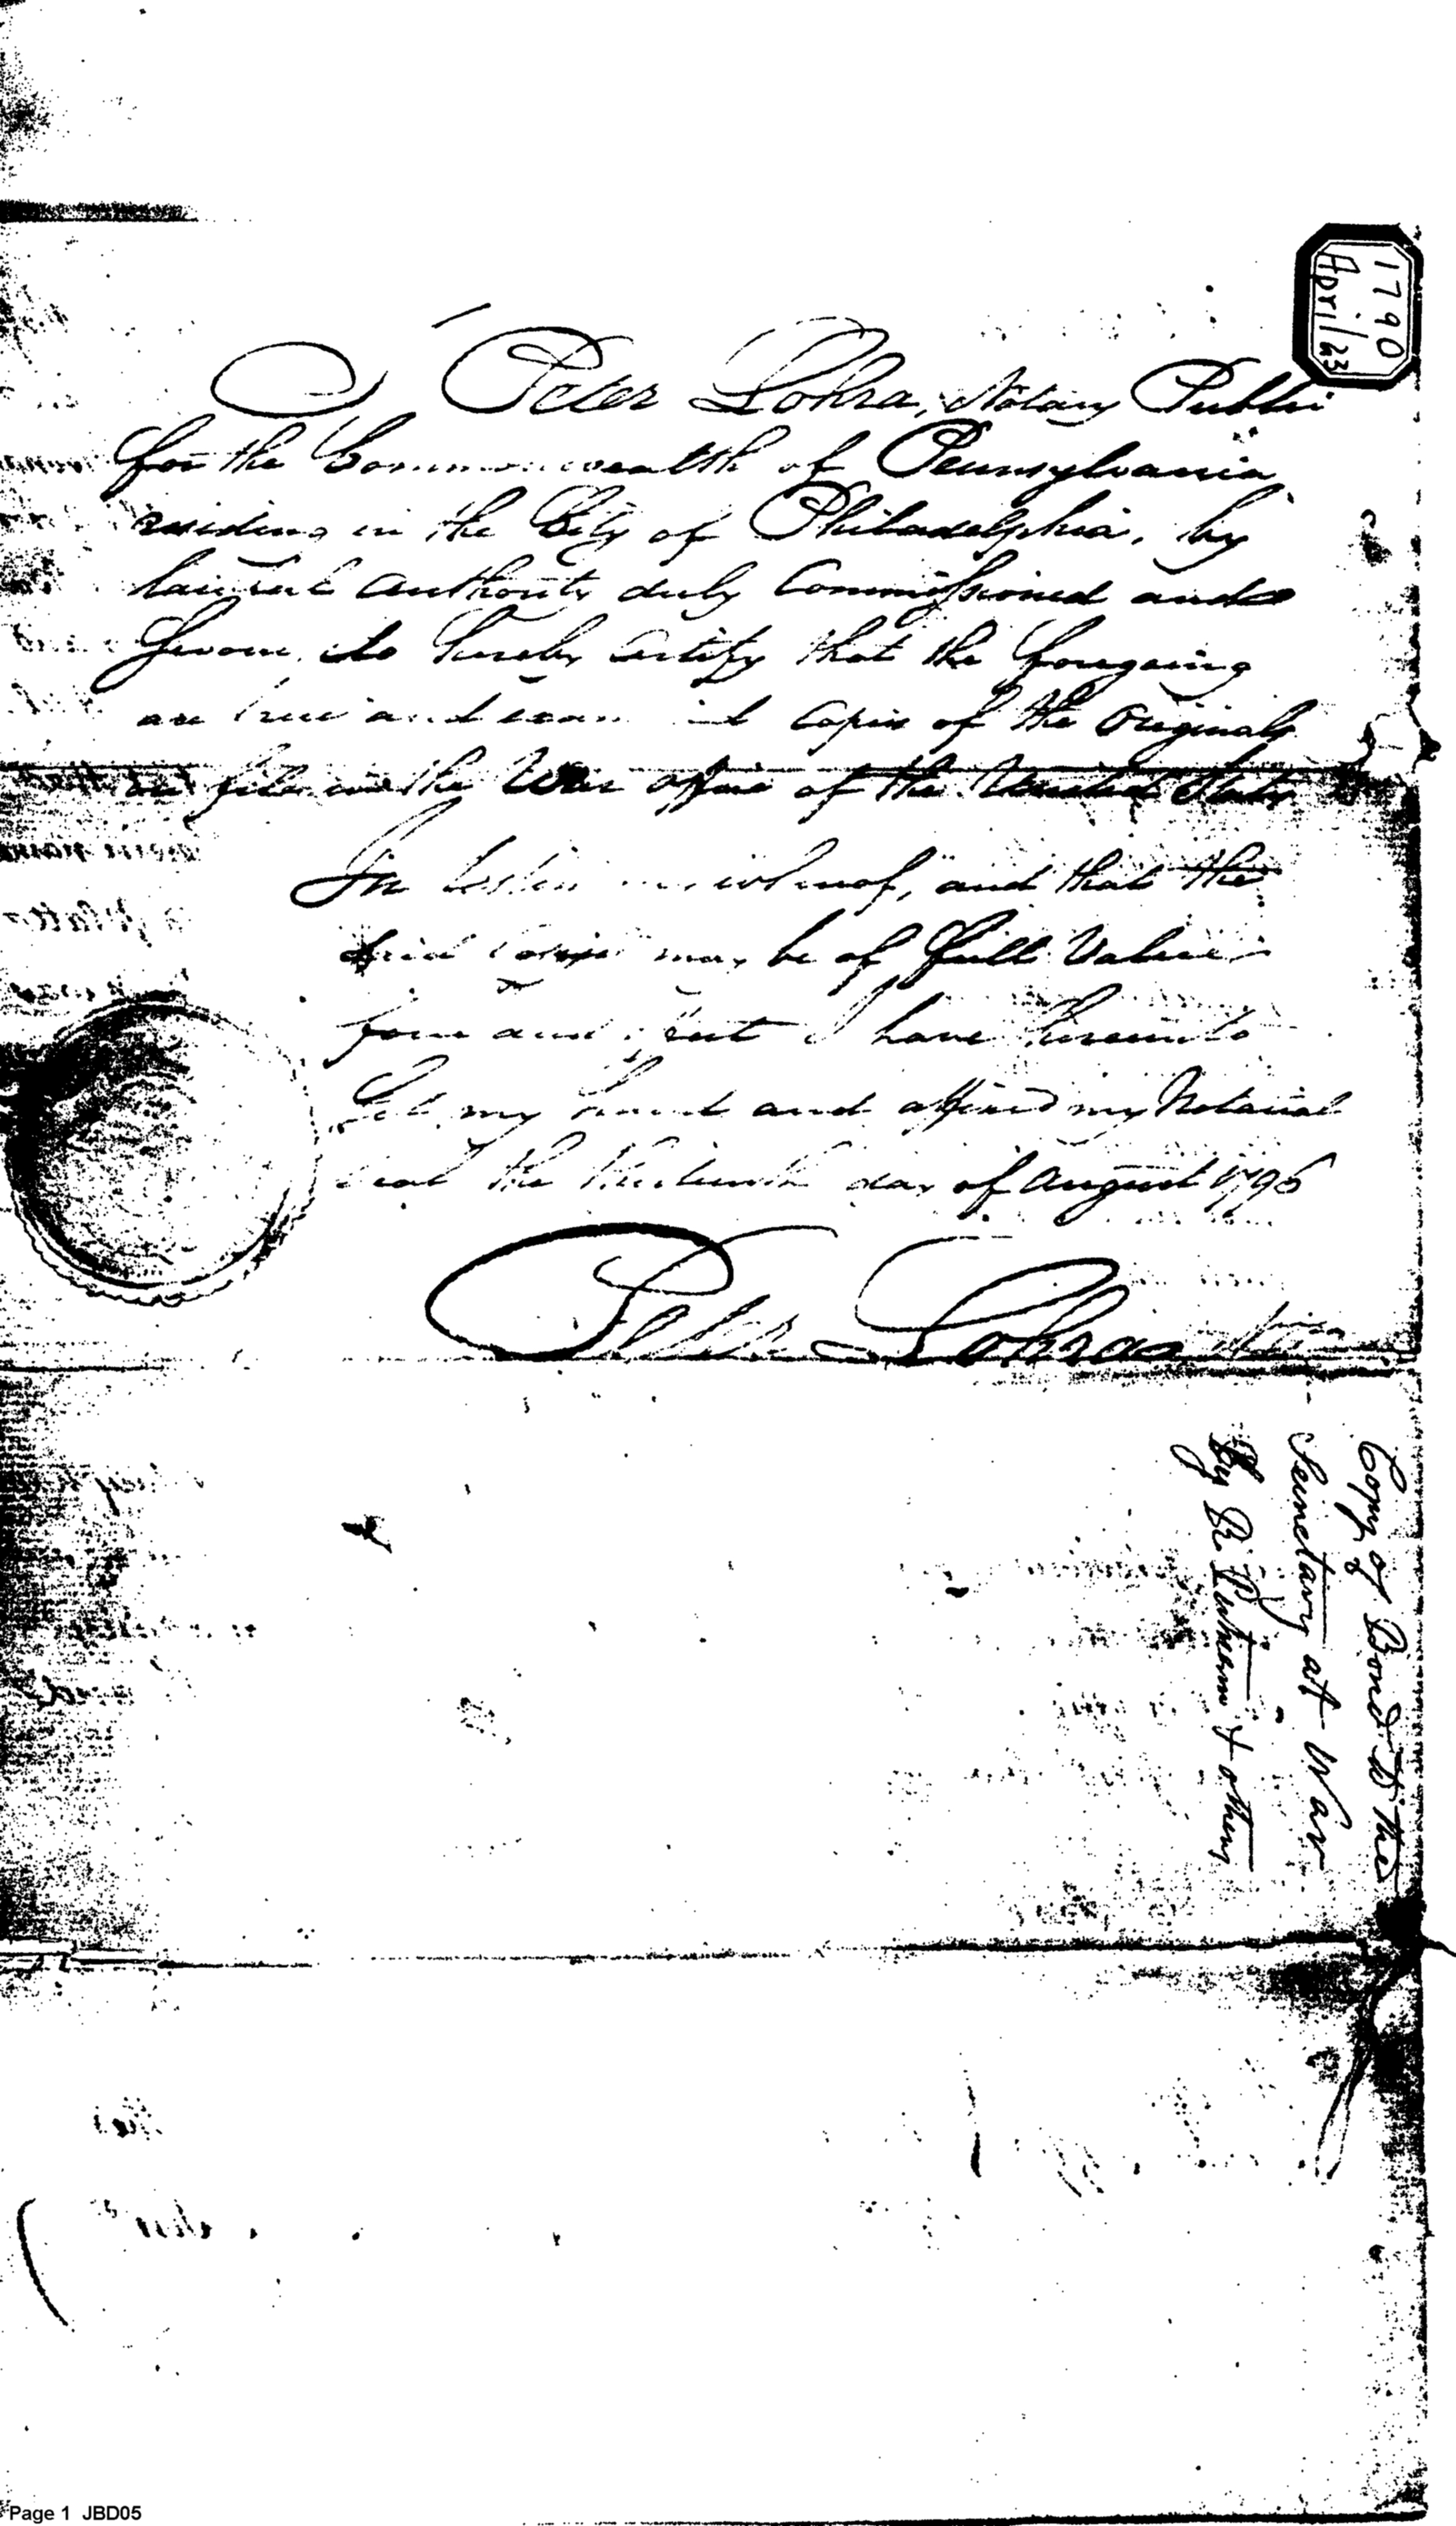 1790
April 23
I Peter Lohra, Notary Public
for the Commonwealth of Pennsylvania
residing in the City of Philadelphia, by
lawful authority duly Commissioned and
Sworn, do hereby Certify that the foregoing
are true and Copies of the Originals
on file in the War Office of the United States
In testimony whereof, and that the
said Copies may be of full Value
force and I have hereunto
Set my hand and affixed my Notarial
Seal the thirteenth day of August 1796
Peter Lohra
Copy of Bond to the
Secretary at War
By R Putnam & others
Page 1 JBD05